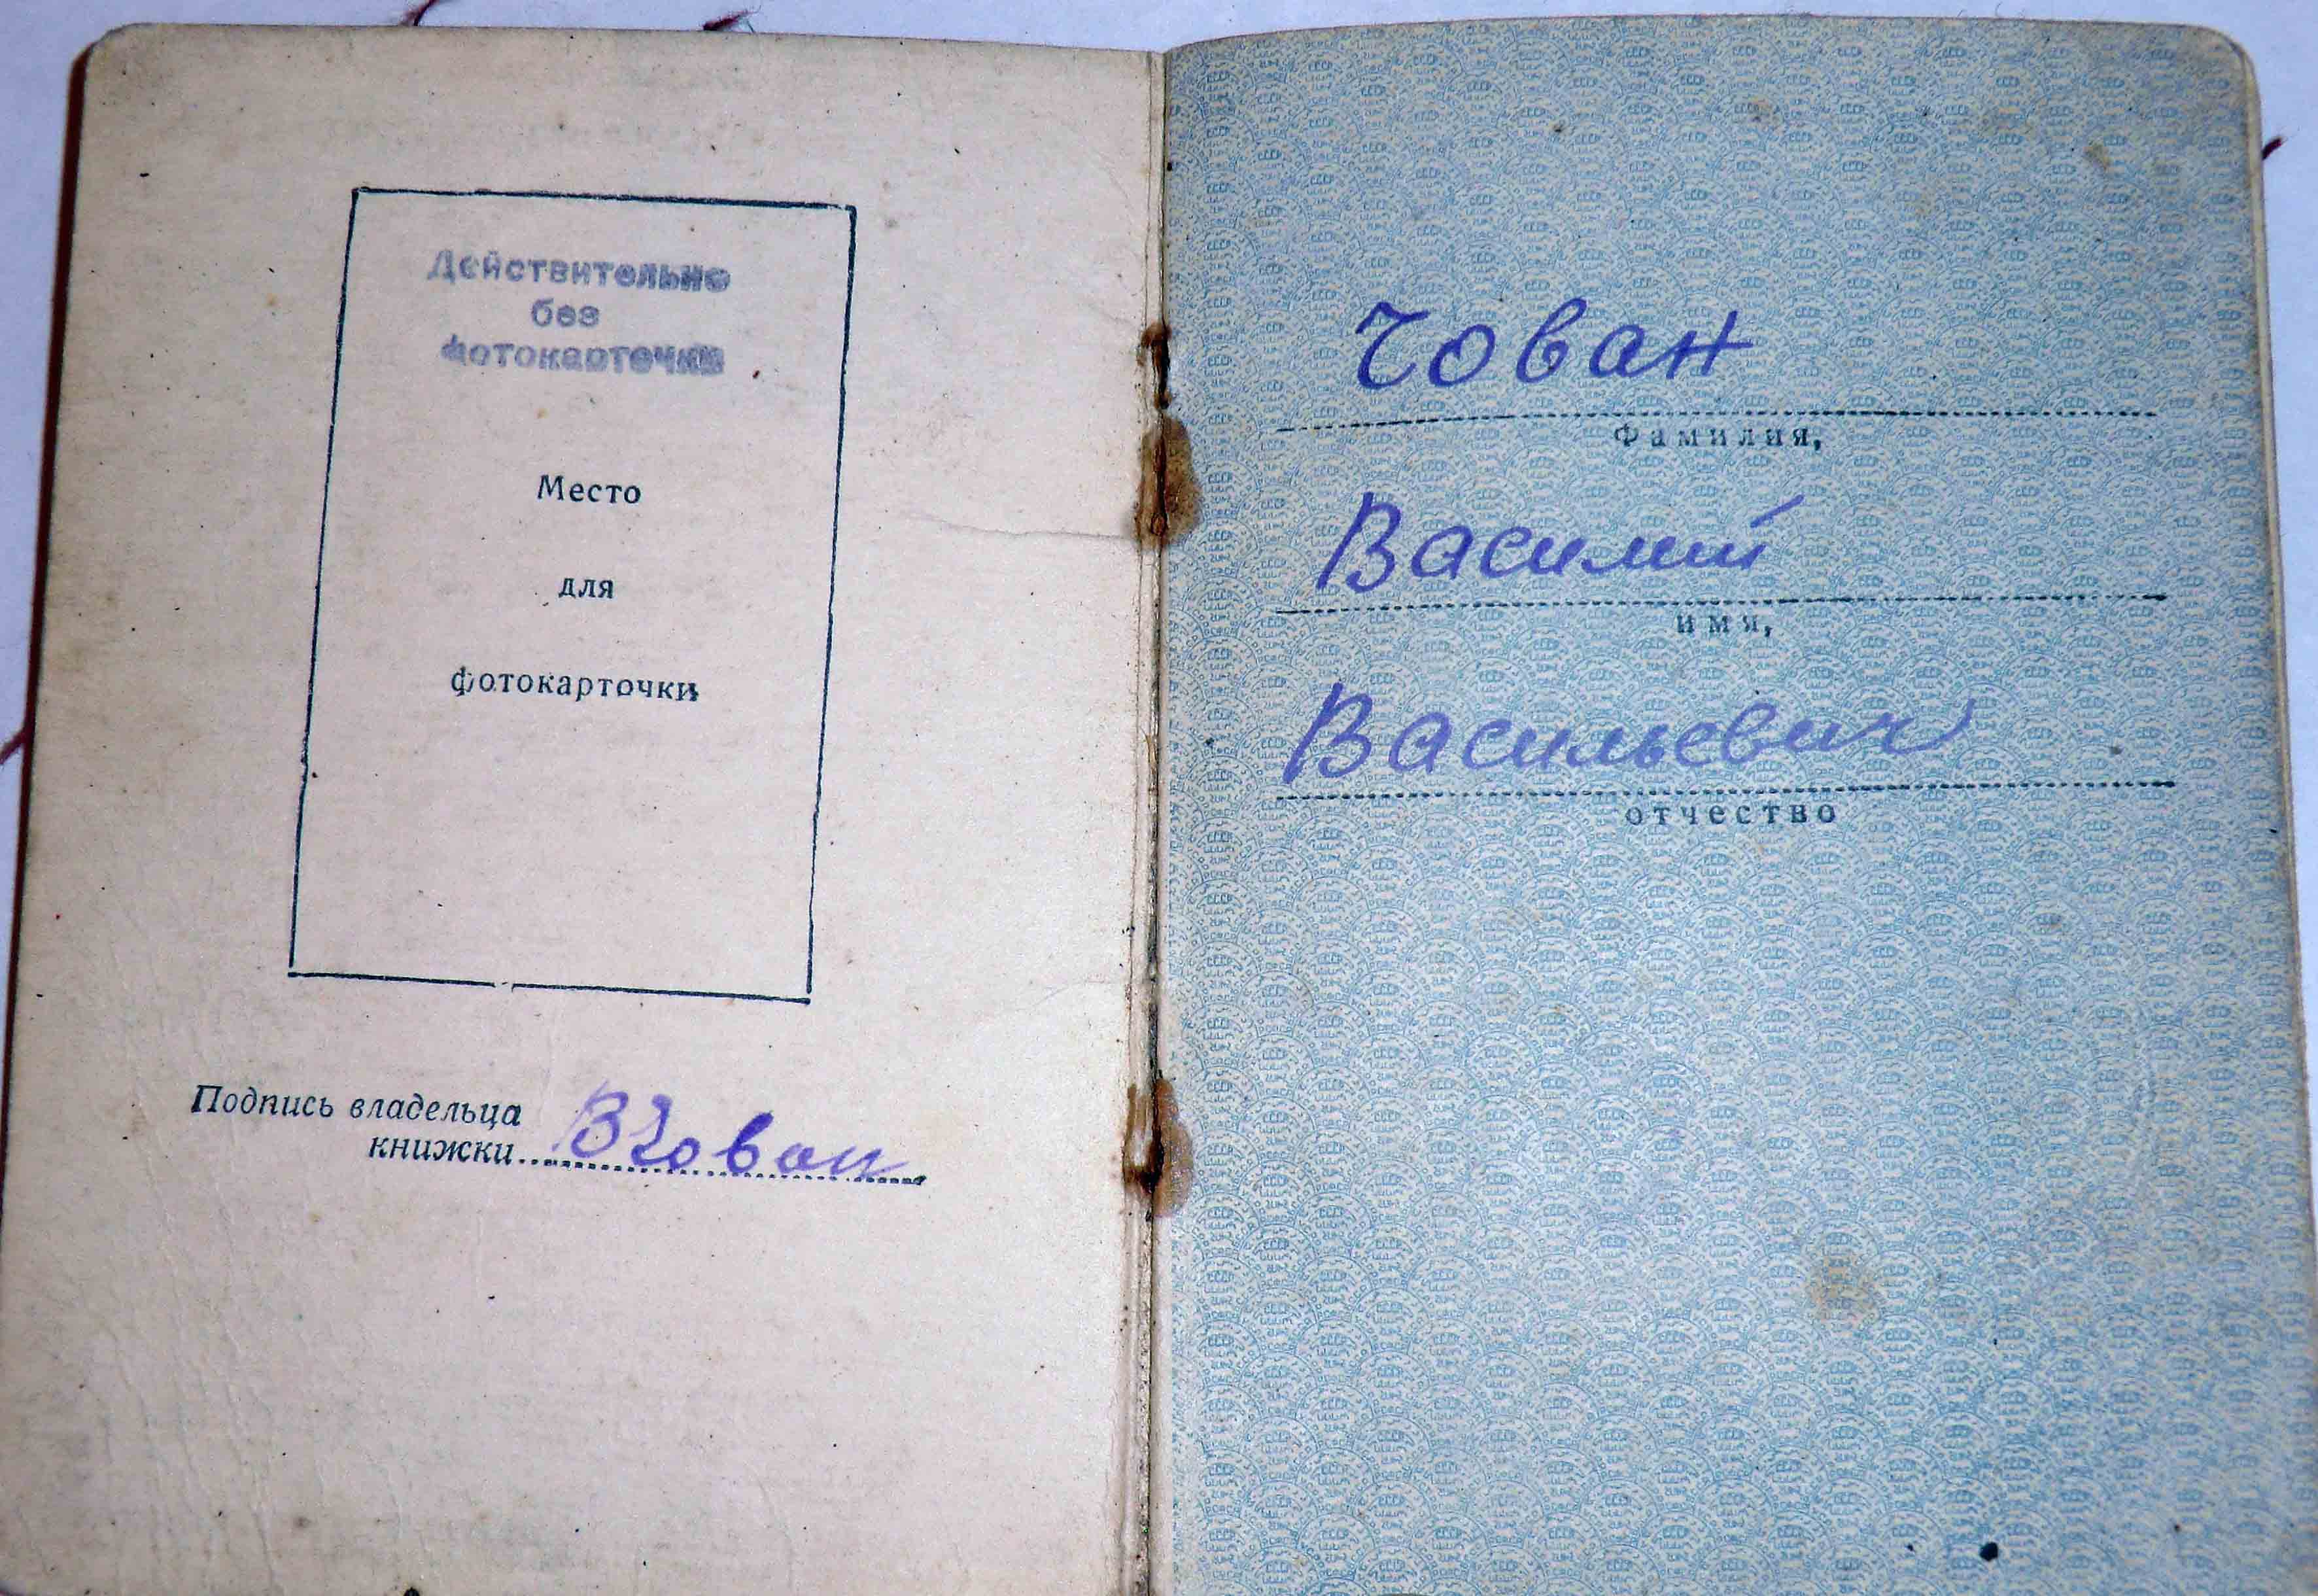 Действительно
без
фотокарточки
Место
для
фотокарточки
Подпись владельца
книжки ВЧован
Чован
Фамилия,
Василий
имя,
Васильевич
отчество